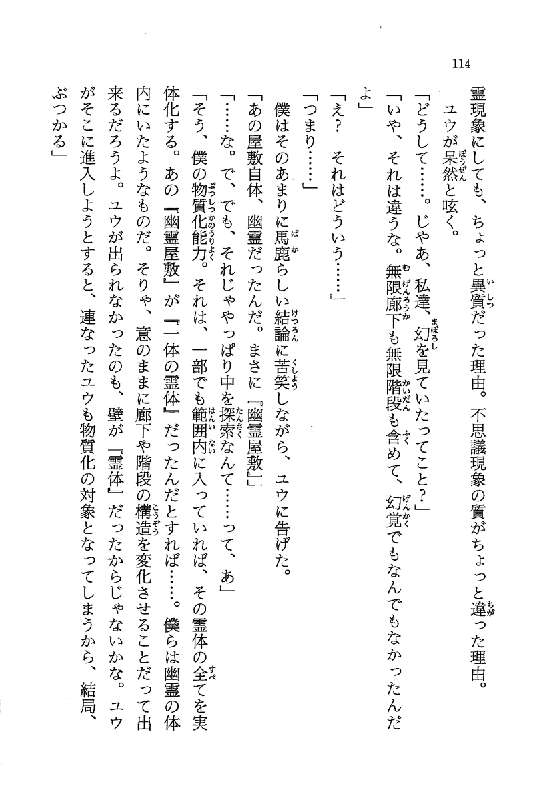 114
霊現象にしても、ちょっと異質だった理由。不思議現象の質がちょっと違った理由。
ユウが呆然と呟く。
「どうして……。じゃあ、私達、幻を見ていたってこと?」
「いや、それは違うな。無限廊下も無限階段も含めて、幻覚でもなんでもなかったんだ
よ」
「え? それはどういう……」
「つまり……」
僕はそのあまりに馬鹿らしい結論に苦笑しながら、ユウに告げた。
「あの屋敷自体、幽霊だったんだ。まさに『幽霊屋敷』」
「……な。で、でも、それじゃやっぱり中を探索なんて……って、あ」
「そう、僕の物質化能力。それは、一部でも範囲内に入っていれば、その霊体の全てを実
体化する。あの『幽霊屋敷』が『一体の霊体』だったんだとすれば……。僕らは幽霊の体
内にいたようなものだ。そりゃ、意のままに廊下や階段の構造を変化させることだって出
来るだろうよ。ユウが出られなかったのも、壁が『霊体』だったからじゃないかな。ユウ
がそこに進入しようとすると、連なったユウも物質化の対象となってしまうから、結局、
ぶつかる」